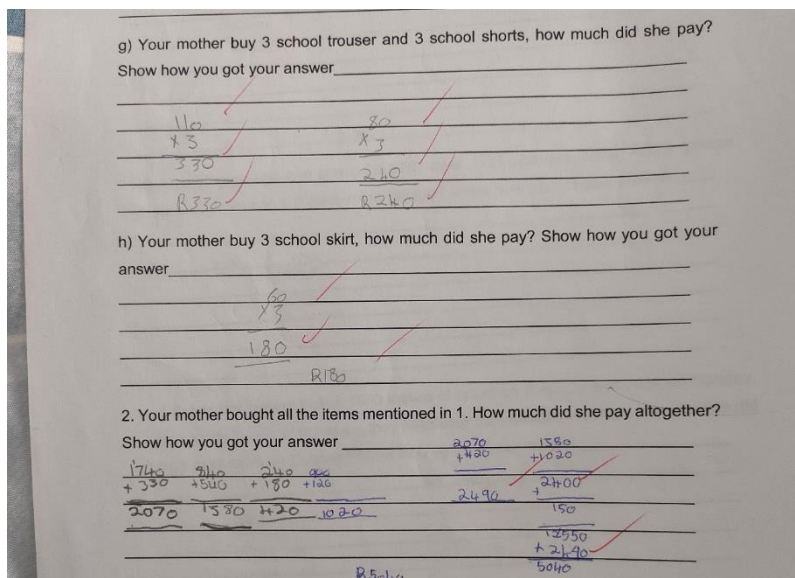 g) Your mother buy 3 school trouser and 3 school shorts, how much did she pay?
Show how you got your answer
110 80
x 3 x 3
330 240
R330 R240
h) Your mother buy 3 school skirt, how much did she pay? Show how you got your
answer
60
x3
180
R180
2. Your mother bought all the items mentioned in 1. How much did she pay altogether?
Show how you got your answer
2070 1380
+420 +1020
1740 840 240 900
+ 330 +540 + 180 +120
2490 2400
+
2070 1380 420 1020
150
2550
+ 2490
5040